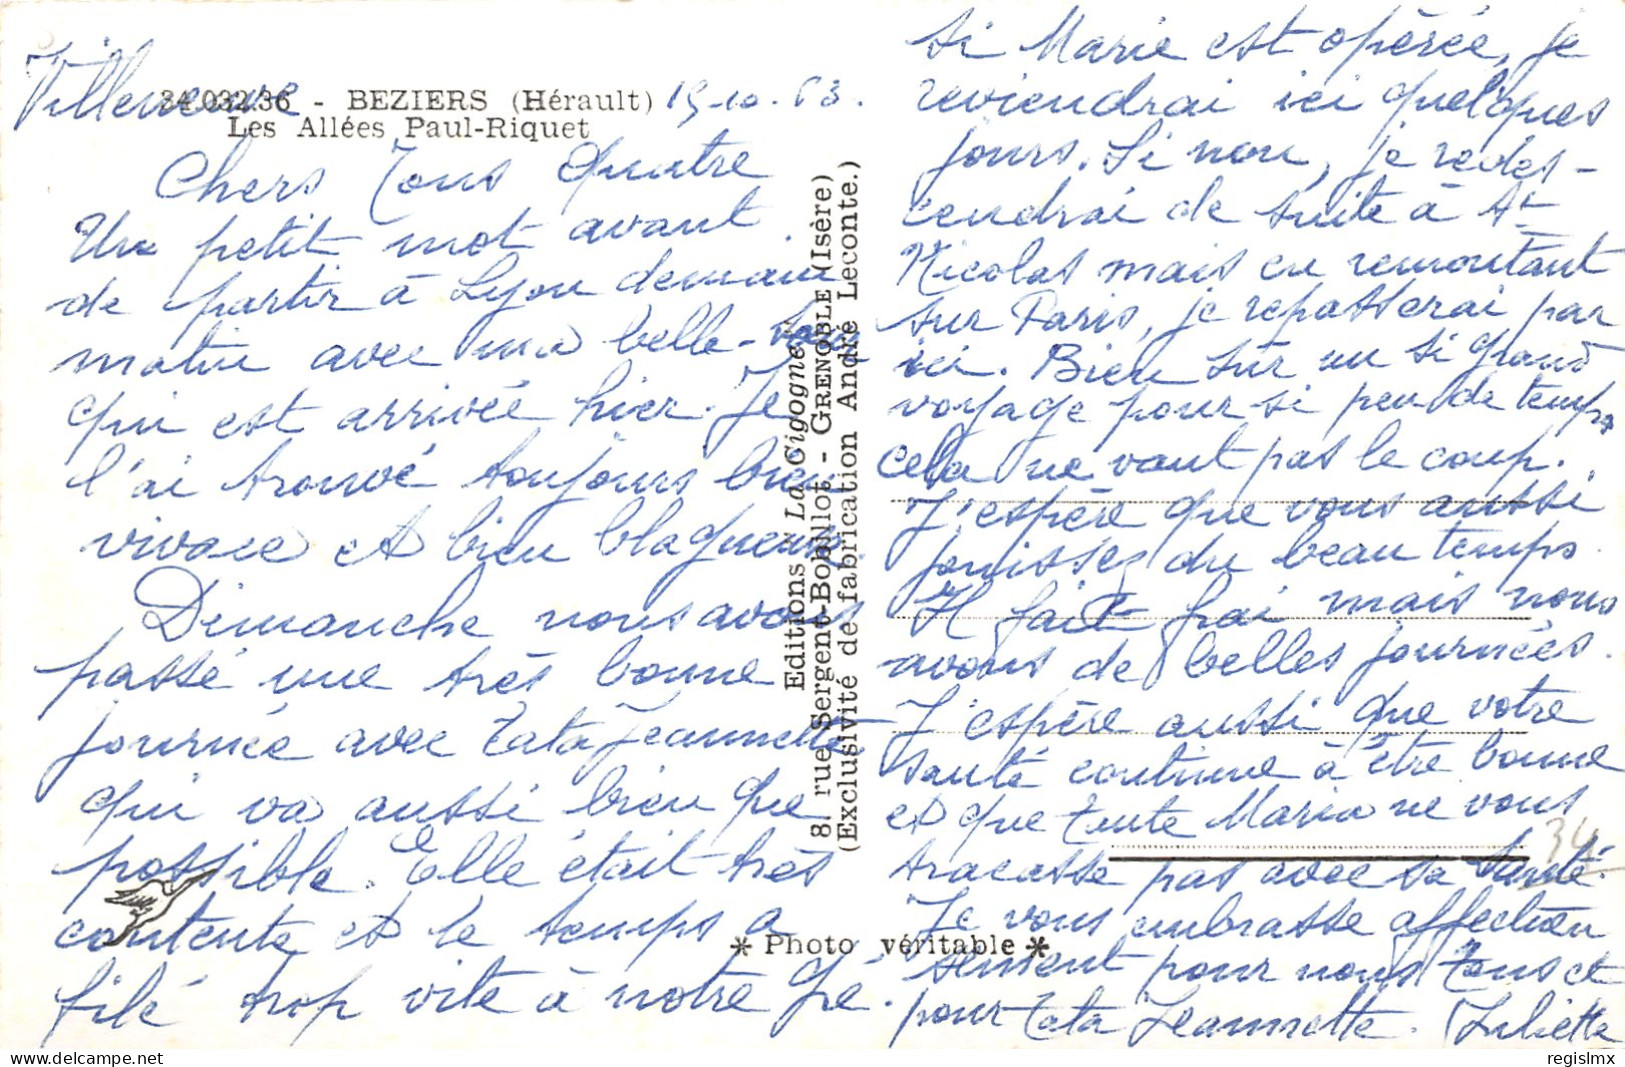 Villeneuve
34.032.36 - BEZIERS (Hérault) 15-10-63.
Les Allées Paul-Riquet
Chers Tous Quatre
Un petit mot avant
de partir à Lyon demain
matin avec ma belle-
qui est arrivée hier. Je
l'ai trouvé toujours bien
vivace et bien blagueuse.
Dimanche nous avons
passé une très bonne
journée avec Tata Jeannette
qui va aussi bien que
possible. Elle était très
contente et le temps a
filé trop vite à notre gré.
Editions « La Cigogne »
8, rue Sergent-Bobillot - GRENOBLE (Isère)
(Exclusivité de fabrication André Leconte.)
* Photo véritable *
Si Marie est opérée, je
reviendrai ici quelques
jours. Si non, je redes-
cendrai de suite à St
Nicolas mais en remontant
sur Paris, je repasserai par
ici. Bien sûr un si grand
voyage pour si peu de temps
cela ne vaut pas le coup.
J'espère que vous aussi
jouissez du beau temps.
Il fait frai mais nous
avons de belles journées.
J'espère aussi que votre
santé continue à être bonne
et que tante Maria ne vous
tracasse pas avec sa santé.
34
Je vous embrasse affectueu
sement pour nous tous et
pour Tata Jeannette. Juliette
regislmx
delcampe.net